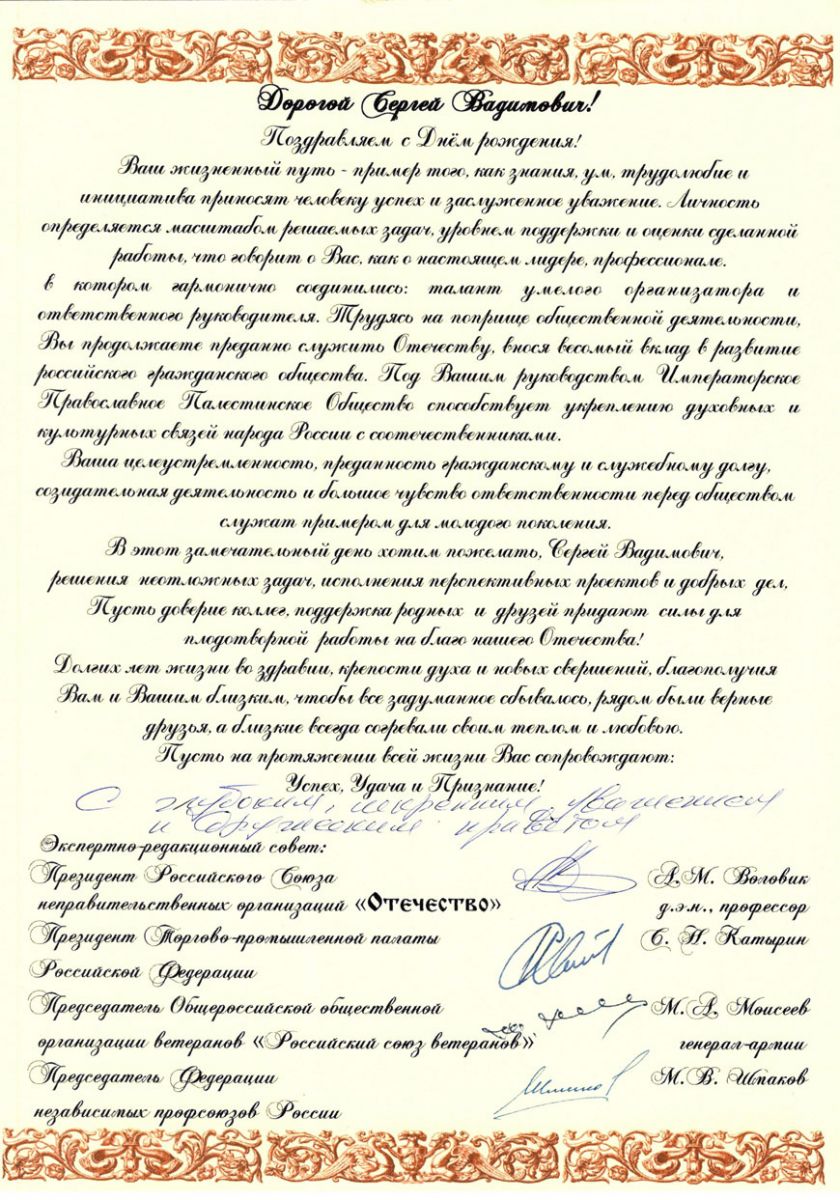 Дорогой Сергей Вадимович!
Поздравляем с Днём рождения!
Ваш жизненный путь - пример того, как знания, ум, трудолюбие и
инициатива приносят человеку успех и заслуженное уважение. Личность
определяется масштабом решаемых задач, уровнем поддержки и оценки сделанной
работы, что говорит о Вас, как о настоящем лидере, профессионале.
в котором гармонично соединились: талант умелого организатора и
ответственного руководителя. Трудясь на поприще общественной деятельности,
Вы продолжаете преданно служить Отечеству, внося весомый вклад в развитие
российского гражданского общества. Под Вашим руководством Императорское
Православное Палестинское Общество способствует укреплению духовных и
культурных связей народа России с соотечественниками.
Ваша целеустремленность, преданность гражданскому и служебному долгу,
созидательная деятельность и большое чувство ответственности перед обществом
служат примером для молодого поколения.
В этот замечательный день хотим пожелать, Сергей Вадимович,
решения неотложных задач, исполнения перспективных проектов и добрых дел,
Пусть доверие коллег, поддержка родных и друзей придают силы для
плодотворной работы на благо нашего Отечества!
Долгих лет жизни во здравии, крепости духа и новых свершений, благополучия
Вам и Вашим близким, чтобы все задуманное сбывалось, рядом были верные
друзья, а близкие всегда согревали своим теплом и любовью.
Пусть на протяжении всей жизни Вас сопровождают:
Успех, Удача и Признание!
С глубоким, искренним уважением
и дружеским приветом
Экспертно-редакционный совет:
Президент Российского Союза А.М. Воловик
неправительственных организаций «Отечество» д.э.н., профессор
Президент Торгово-промышленной палаты С. Н. Катырин
Российской Федерации
Председатель Общероссийской общественной М.А. Моисеев
организации ветеранов «Российский союз ветеранов» генерал-армии
Председатель Федерации М. В. Шпаков
независимых профсоюзов России